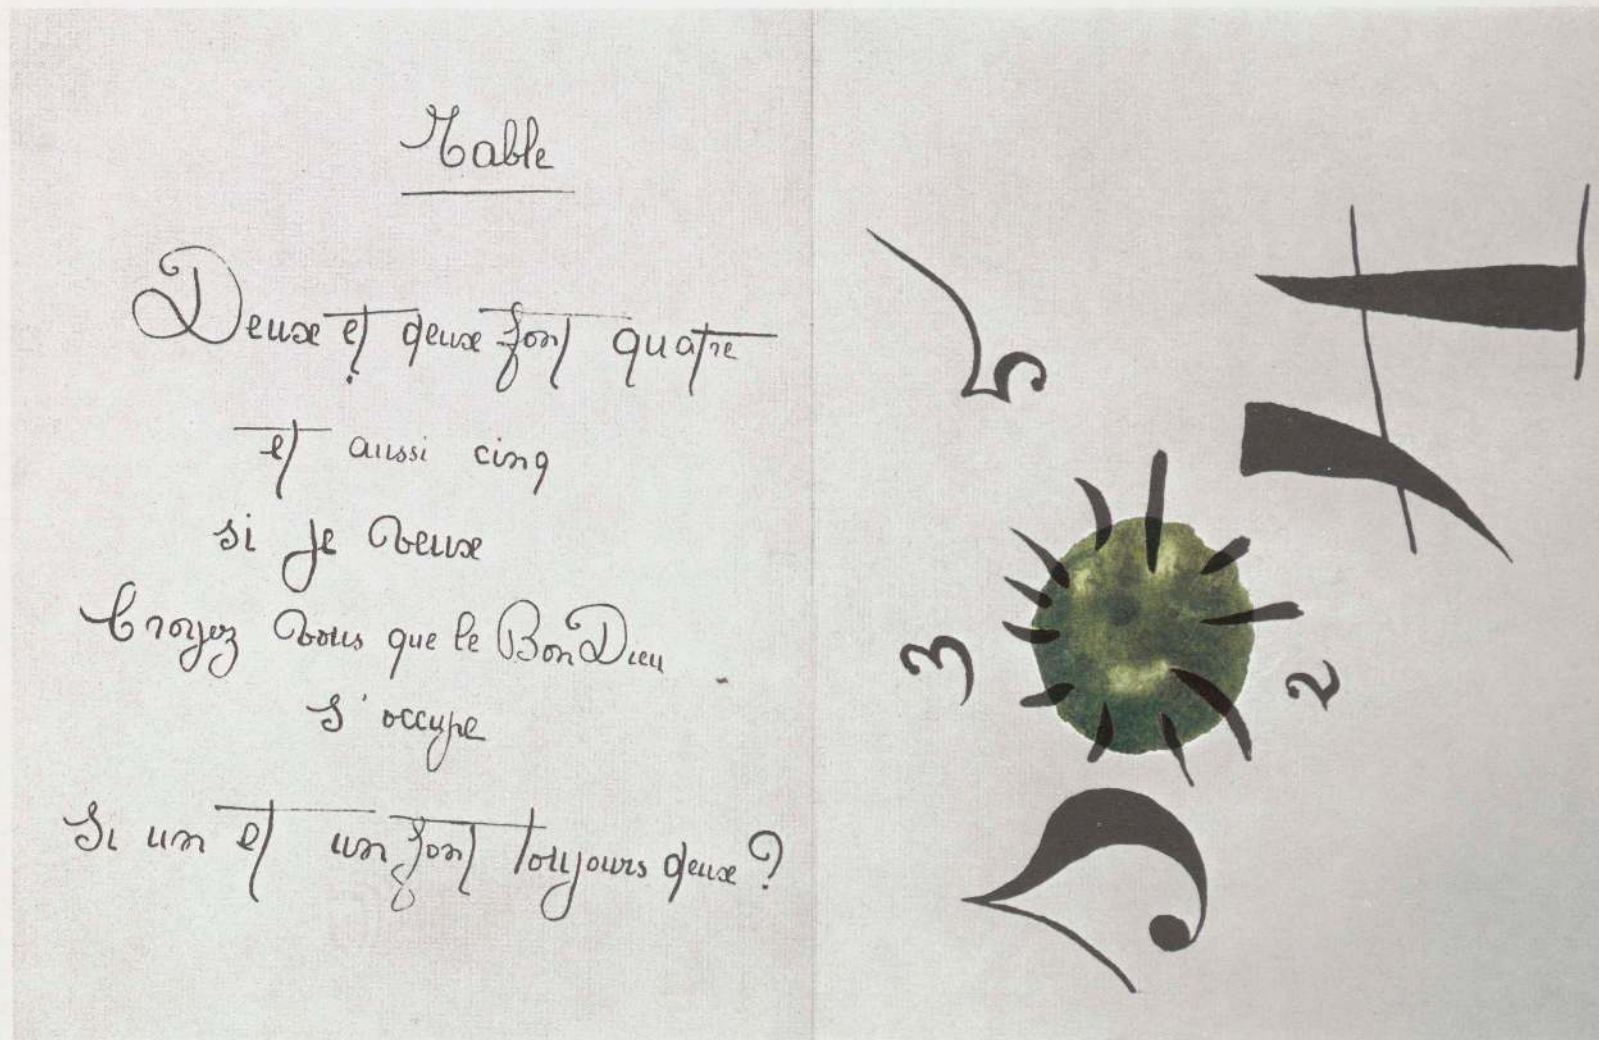 Table
Deux et deux font quatre
et aussi cinq
si je veux
Croyez vous que le Bon Dieu
s'occupe
Si un et un font toujours deux ?
5
4
3
2
2